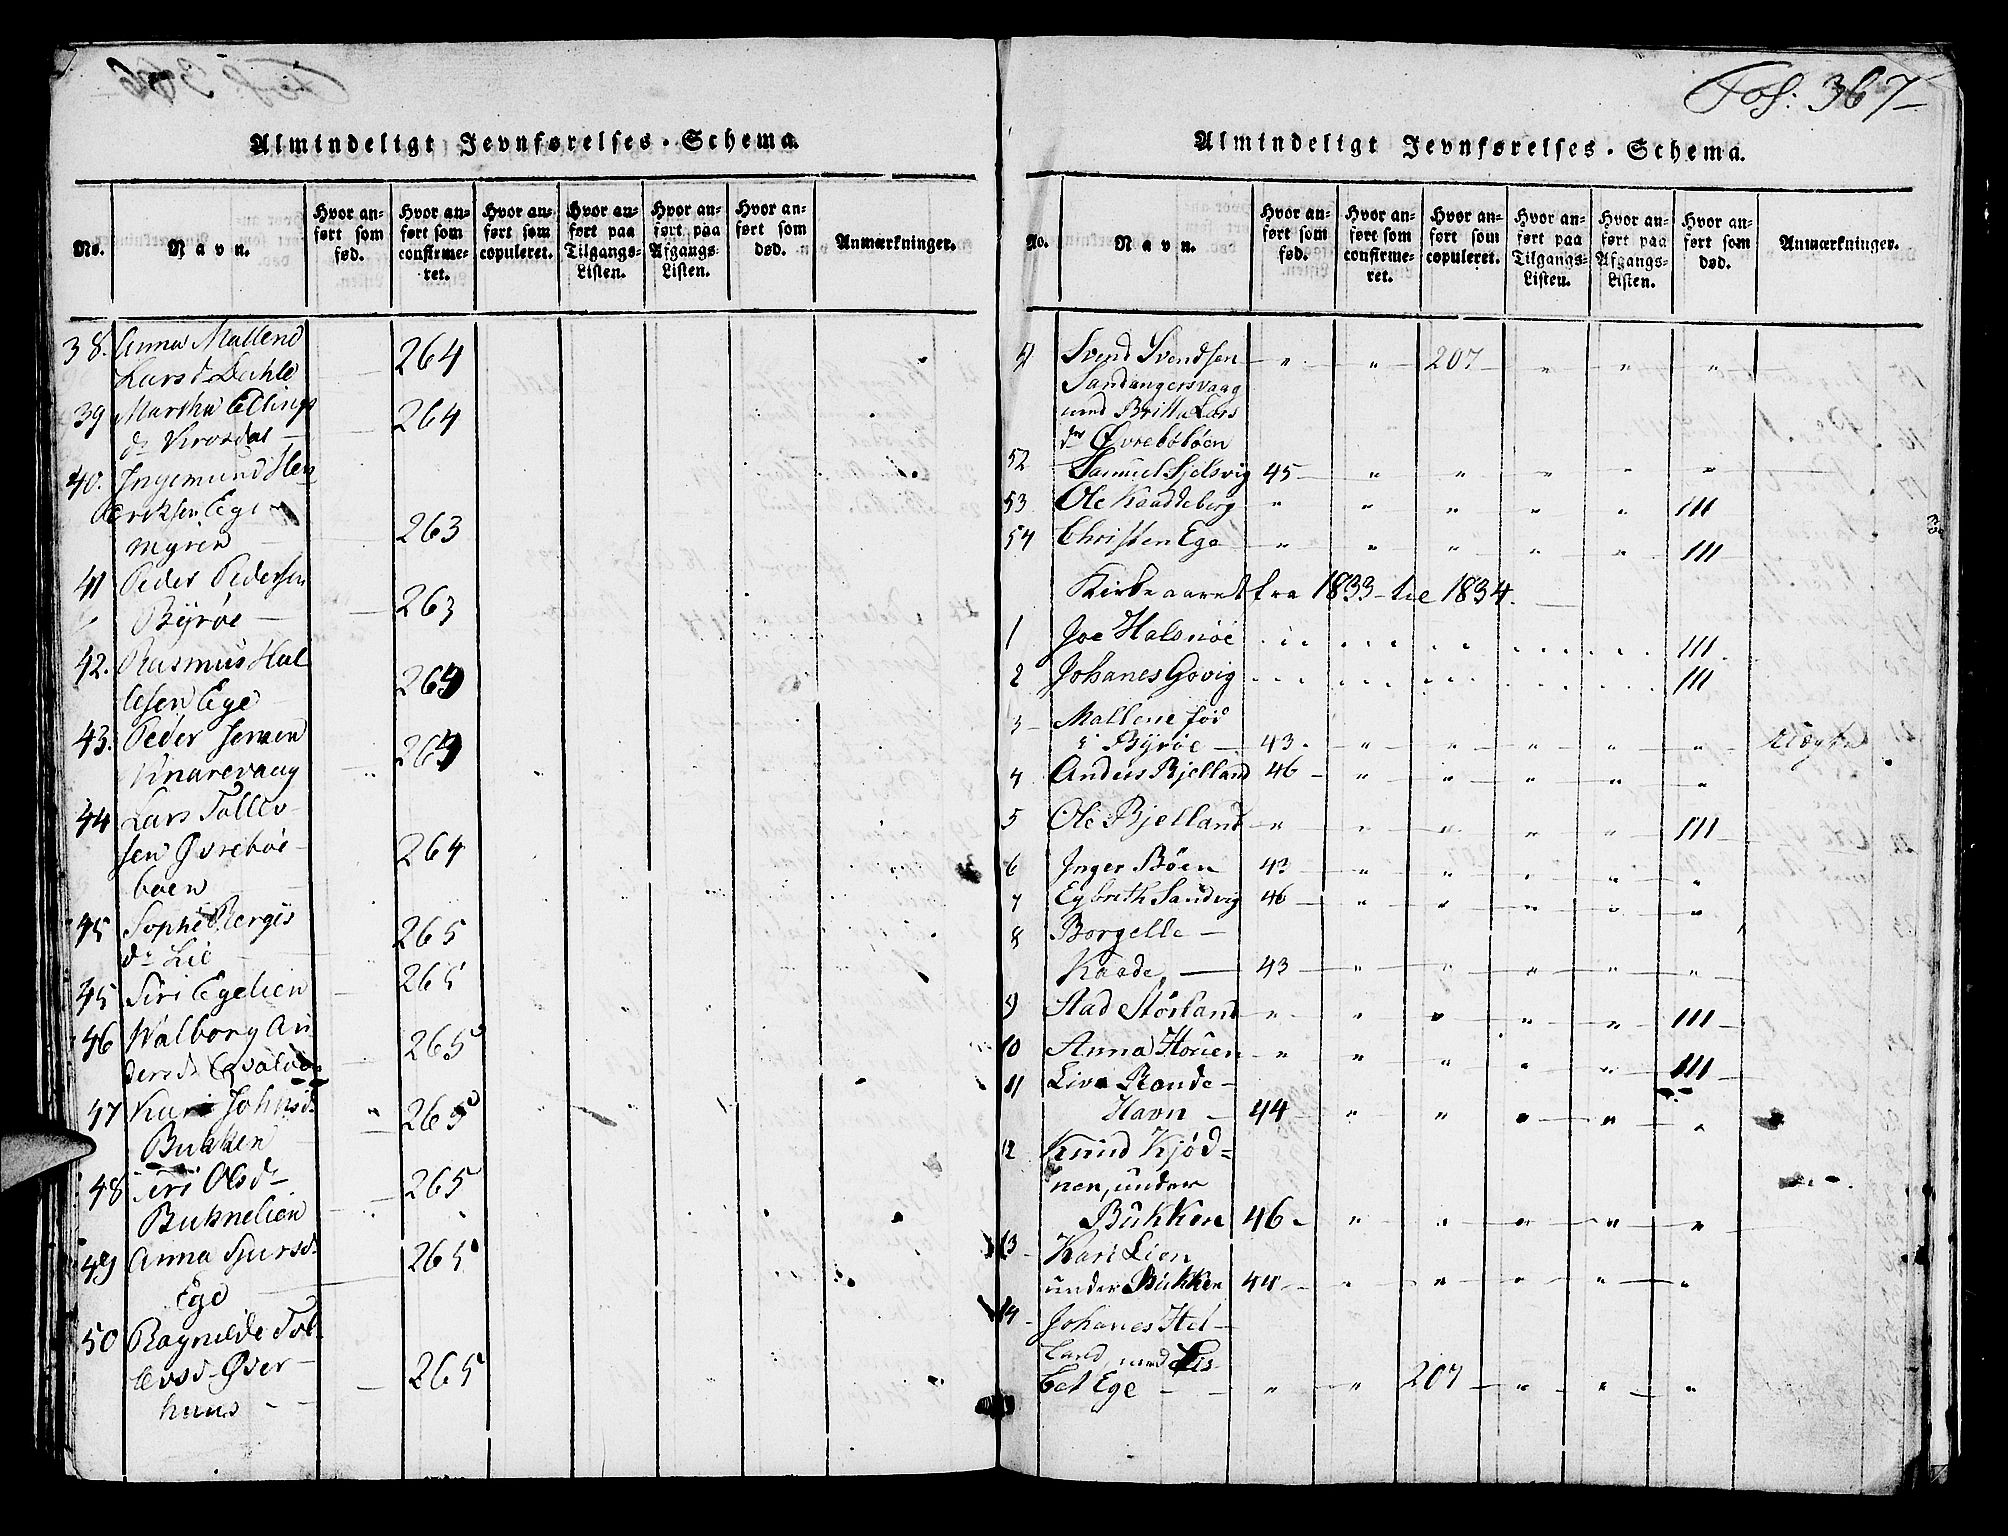 Almindeligt Jevnførelses-Schema.
No.
Navn.
Hvor anført som fød.
Hvor anført som confirmeret.
Hvor anført som copuleret.
Hvor anført paa Tilgangs-Listen.
Hvor anført paa Afgangs-Listen.
Hvor anført som død.
Anmærkninger.
38. Anna Mallend
Larsd Dahle 264
39 Martha Ellings
dr 264
40. Ingemund Hen
driksen Ege
myren 263
41 Peder Pedersen
Byrøe 263
42. Rasmus Hal
lesen Ege 264
43. Peder Jensen
Knarevaag 264
44 Lars Tollev
sen Øvrebøe
boen 264
45 Sophi Bergis
dr Lie 265
45 Siri Egelien 265
46 Walborg An
dersd 265
47 Kari Johnsd
Bukken 265
48 Siri Olsd
Buknelien 265
49 Anna Siursd
Ege 265
50 Ragnilde Tol
levsd Øver
huus 265
Fol: 367
Almindeligt Jevnførelses-Schema.
No.
Navn.
Hvor anført som fød.
Hvor anført som confirmeret.
Hvor anført som copuleret.
Hvor anført paa Tilgangs-Listen.
Hvor anført paa Afgangs-Listen.
Hvor anført som død.
Anmærkninger.
Svend Svendsen " " 207 " " "
Sandangersvaag
med Britta Lars
dr Øvrebøbøen
52 Samuel Hjelsvig 45 " " " " "
53 Ole Kaaddeberg " " " " " 111
54 Christen Ege " " " " " 111
Kirkeaaret fra 1833 til 1834.
1 Joe Halsnøe 111
2 Johanes Govig 111
3 Mallene fød
i Byrøe 43 " " " " "
4 Anders Bjelland 46 " " " " "
5 Ole Bjelland " " " " " 111
6 Inger Bøen 43 " " " " "
7 Egbreth Sandvig 46 " " " " "
8 Borgelle
Kaade 43 " " " " "
9 Aad Størland " " " " " 111
10 Anna Houen " " " " " 111
11 Liva Rande
Havn 44 " " " " "
12 Knud Kjød=
nen, under
Bukken 46 " " " " "
13 Kari Lien
under Bukken 44 " " " " "
14 Johanes Hel
land med Lis
bet Ege " " 207 " " "